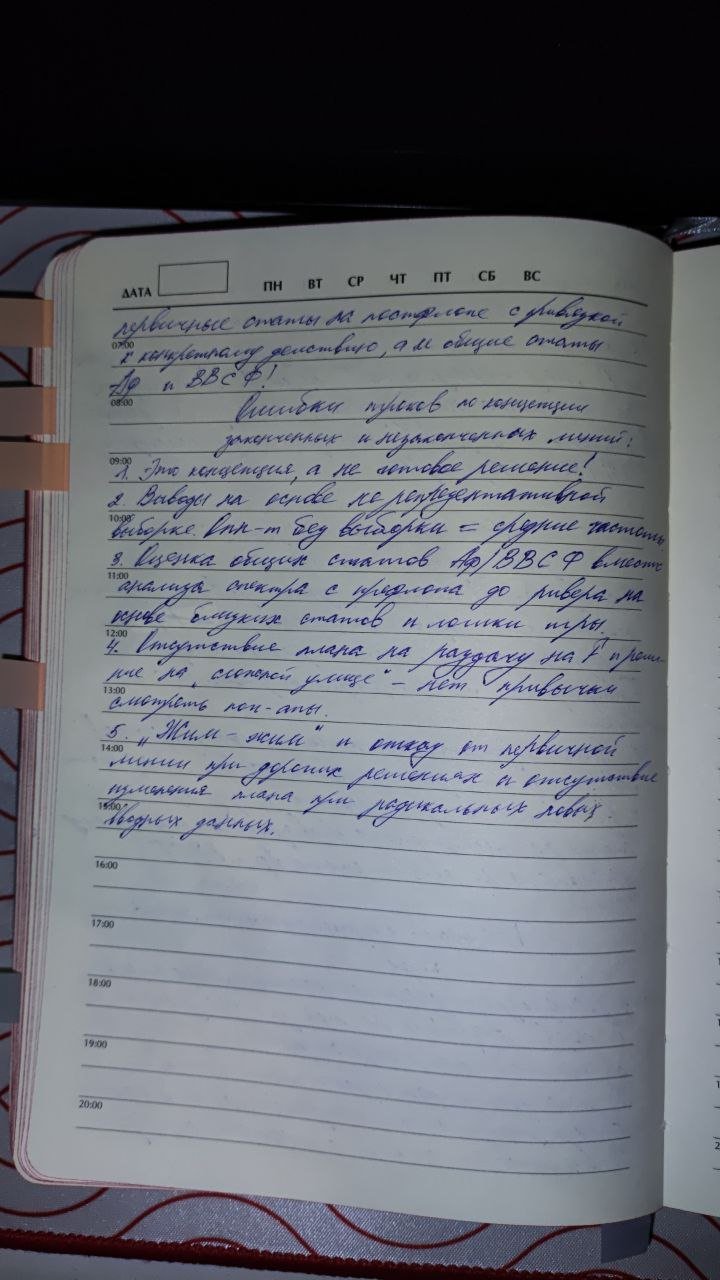 ДАТА ПН ВТ СР ЧТ ПТ СБ ВС
первичные статы на постфлопе с привязкой
07:00
к конкретному действию, а не общие статы
Аф и ВВСФ!
08:00
Ошибки игроков по концепции
законченных и незаконченных линий:
09:00
1. Это концепция, а не готовое решение!
2. Выводы на основе не репрезентативной
10:00
выборке. Опп-т без выборки = средние частоты.
3. Оценка общих статов Аф/ВВСФ вместо
11:00
анализа спектра с префлопа до ривера на
основе близких статов и логики игры.
12:00
4. Отсутствие плана на раздачу на F и
на "слепой улице" – нет привычки
13:00
смотреть поп-апы.
5. "Жим-жим" и отказ от первичной
14:00
линии при дорогих решениях и отсутствие
изменения плана при радикальных новых
15:00
вводных данных.
16:00
17:00
18:00
19:00
20:00